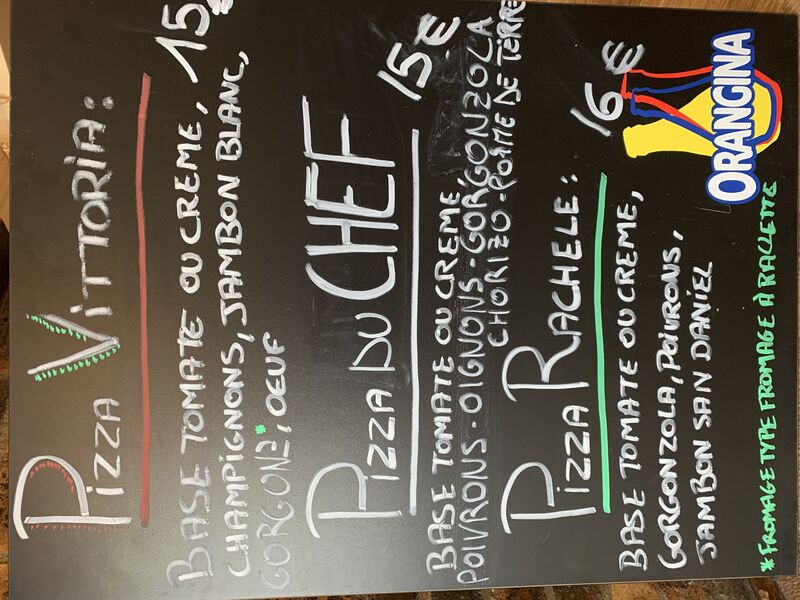 PIZZA VITTORIA:
15€
BASE TOMATE OU CREME,
CHAMPIGNONS, JAMBON BLANC,
GORGONZ*, OEUF
PIZZA DU CHEF
15€
BASE TOMATE OU CREME,
POIVRONS-OIGNONS-GORGONZOLA
CHORIZO-POMME DE TERRE
PIZZA RACHELE:
16€
BASE TOMATE OU CREME,
GORGONZOLA, POIVRONS,
JAMBON SAN DANIEL
ORANGINA
*FROMAGE TYPE FROMAGE À RACLETTE